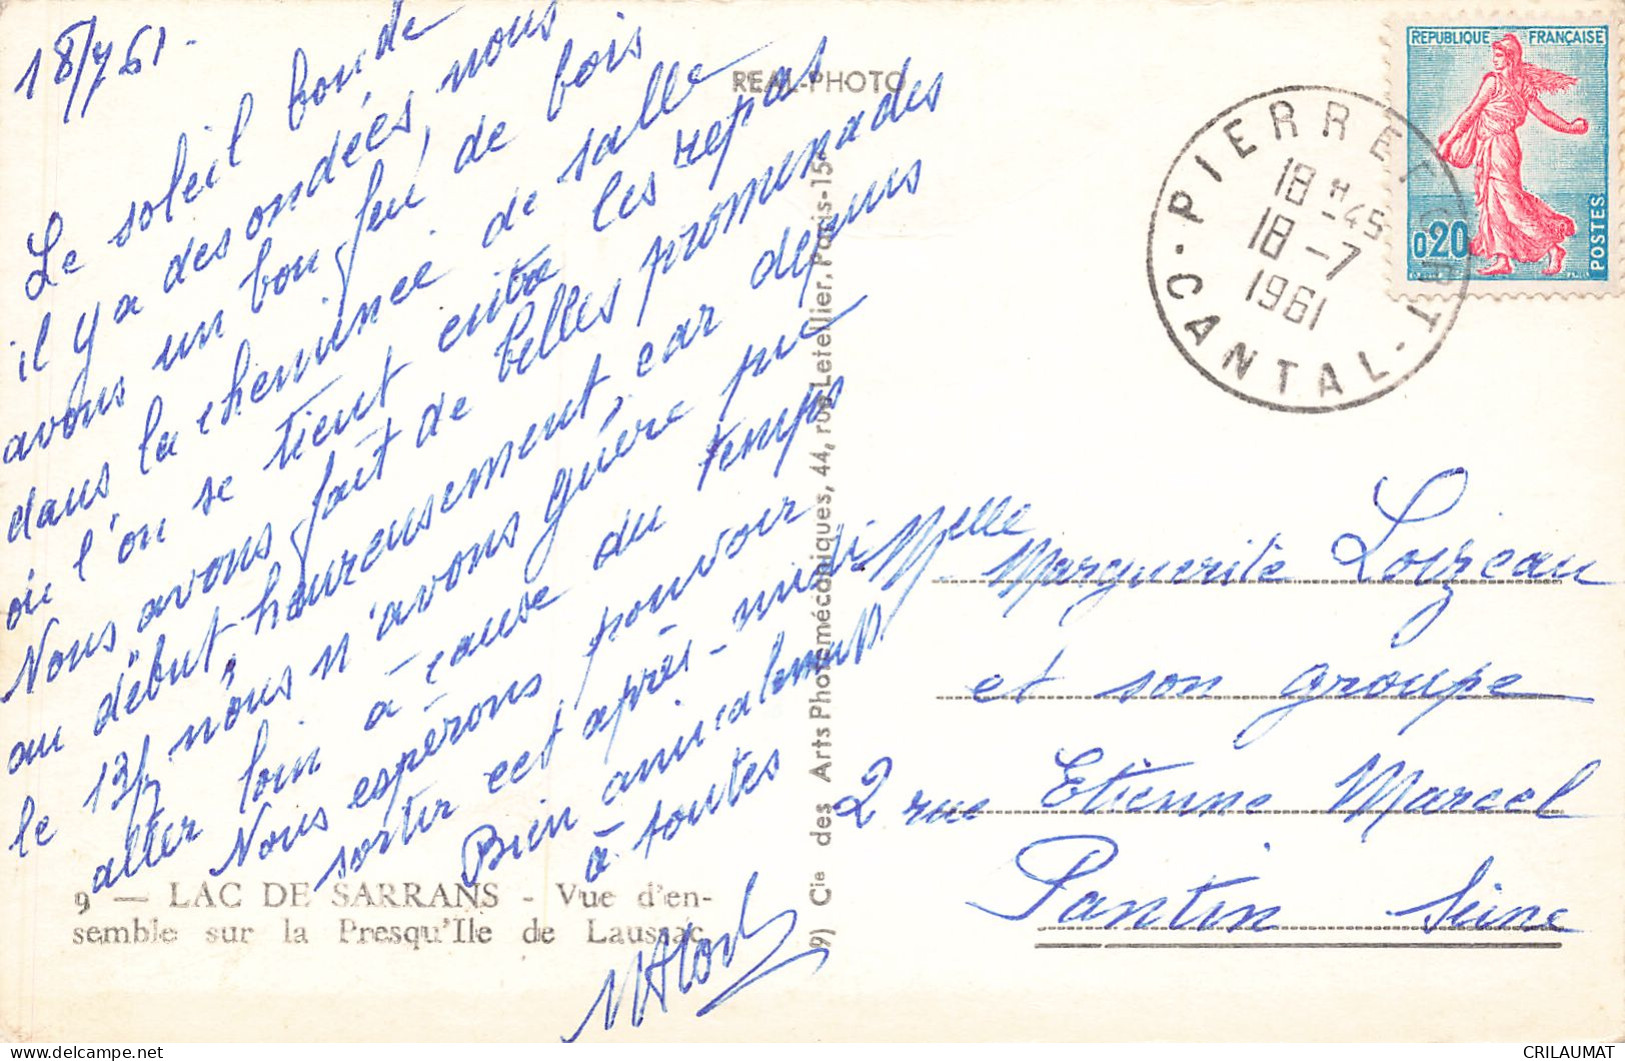 18/7/61.
Le soleil boude
il y a des ondées, nous
avons un bon feu de bois
dans la cheminée de salle
où l'on se tient entre les repas
Nous avons fait de belles promenades
au début, heureusement, car depuis
le 13/7 nous n'avons guère pu
aller loin à cause du temps
Nous espérons pouvoir
sortir cet après-midi
Bien amicalement
à toutes
9 — LAC DE SARRANS - Vue d'en-
semble sur la Presqu'Ile de Laussac
REAL-PHOTO
Cie des Arts Photomécaniques, 44, rue Letellier, Paris-15e
PIERREFORT
CANTAL
18 H -45
18 -7
1961
REPUBLIQUE FRANÇAISE
0,20
POSTES
Melle Marguerite Loizeau
et son groupe
2 rue Etienne Marcel
Pantin Seine
CRILAUMAT